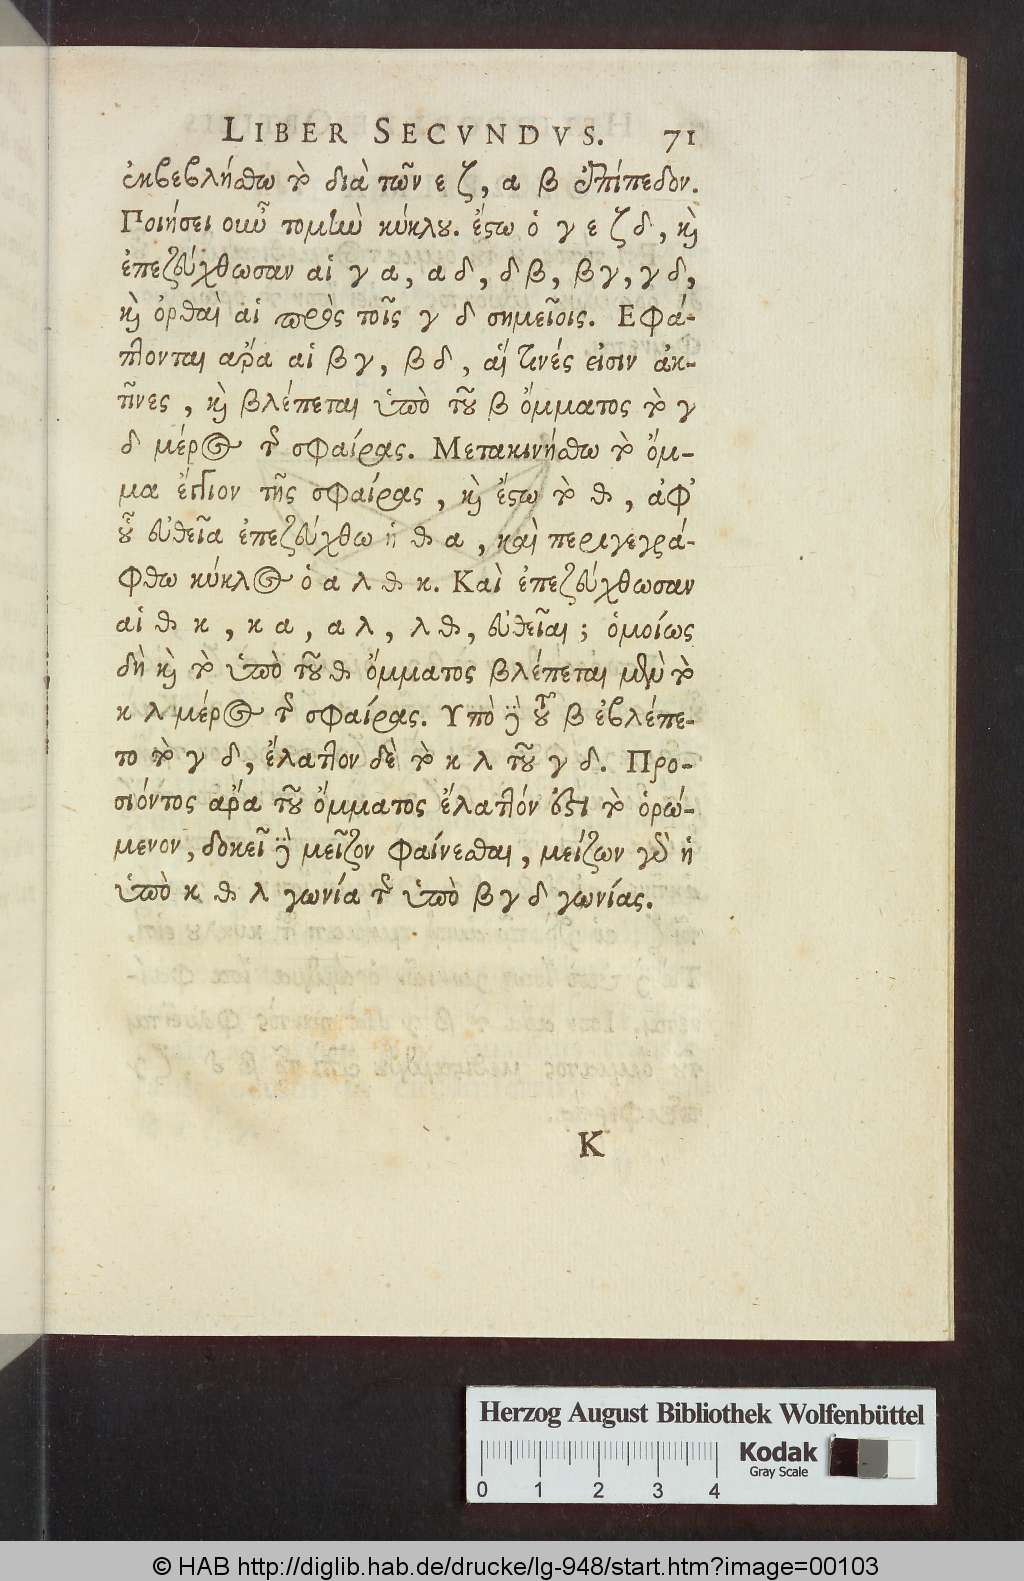 LIBER SECVNDVS. 71
ἐκβεβλήσθω τὸ διὰ τῶν ε ζ, α β ἐπίπεδον.
Ποιήσει οὖν τομὴν κύκλου. ἔστω ὁ γ ε ζ δ, καὶ
ἐπεζεύχθωσαν αἱ γ α, α δ, δ β, β γ, γ δ,
καὶ ὀρθαὶ αἱ πρὸς τοῖς γ δ σημεῖοις. Εφά-
πτονται ἄρα αἱ β γ, β δ, αἵ τινές εἰσιν ἀκ-
τῖνες, καὶ βλέπεται ὑπὸ τοῦ β ὄμματος τὸ γ
δ μέρος τῆς σφαίρας. Μετακινήσθω τὸ ὄμ-
μα ἔγγιον τῆς σφαίρας, καὶ ἔστω τὸ θ, ἀφ’
οὗ εὐθεῖα ἐπεζεύχθω ἡ θ α, καὶ περιγεγρά-
φθω κύκλος ὁ α λ θ κ. Καὶ ἐπεζεύχθωσαν
αἱ θ κ, κ α, α λ, λ θ, εὐθεῖαι; ὁμοίως
δὴ καὶ τὸ ὑπὸ τοῦ θ ὄμματος βλέπεται μὲν τὸ
κ λ μέρος τῆς σφαίρας. Υπὸ δὲ τοῦ β ἐβλέπε-
το τὸ γ δ, ἔλαττον δὲ τὸ κ λ τοῦ γ δ. Προ-
σιόντος ἄρα τοῦ ὄμματος ἔλαττόν ἐστι τὸ ὁρώ-
μενον, δοκεῖ δὲ μεῖζον φαίνεσθαι, μείζων γὰρ ἡ
ὑπὸ κ θ λ γωνία τῆς ὑπὸ β γ δ γωνίας.
K
Herzog August Bibliothek Wolfenbüttel
Kodak
Gray Scale
0 1 2 3 4
© HAB http://diglib.hab.de/drucke/lg-948/start.htm?image=00103